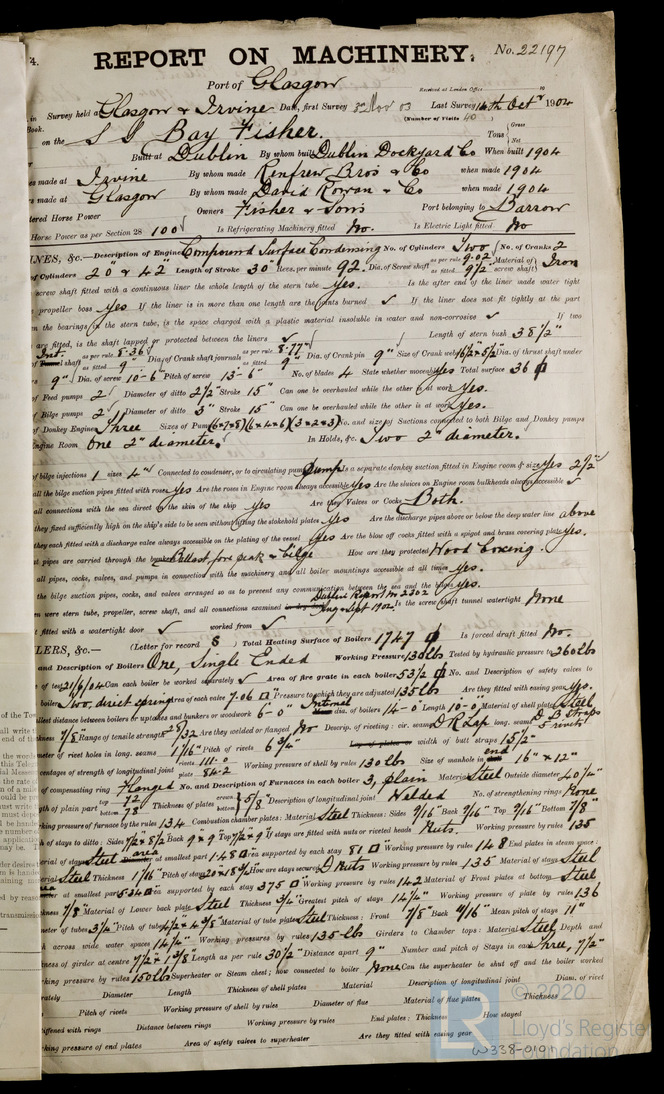 4.
REPORT ON MACHINERY.
No. 22197
Port of Glasgow
Received at London Office
in Survey held at Glasgow & Irvine Date, first Survey 3rd Nov 03 Last Survey 14th Octr 1904
Book.
(Number of Visits 40)
on the S S Bay Fisher.
Tons Gross Net
Built at Dublin By whom built Dublin Dockyard Co When built 1904
es made at Irvine By whom made Renfrew Bros & Co when made 1904
s made at Glasgow By whom made David Rowan & Co when made 1904
tered Horse Power Owners Fisher & Sons Port belonging to Barrow
Horse Power as per Section 28 100 Is Refrigerating Machinery fitted No. Is Electric Light fitted No
INES, &c.—Description of Engines Compound Surface Condensing No. of Cylinders Two No. of Cranks 2
of Cylinders 20" & 42" Length of Stroke 30" Revs. per minute 92. Dia. of Screw shaft as per rule 9.02 as fitted 9 1/2" Material of screw shaft Iron
screw shaft fitted with a continuous liner the whole length of the stern tube yes. Is the after end of the liner made water tight
propeller boss yes If the liner is in more than one length are the joints burned ✓ If the liner does not fit tightly at the part
the bearings in the stern tube, is the space charged with a plastic material insoluble in water and non-corrosive ✓ If two
are fitted, is the shaft lapped or protected between the liners ✓ Length of stern bush 38 1/2"
of Int. shaft as per rule 8.36 as fitted 9" Dia. of Crank shaft journals as per rule 8.77" as fitted 9" Dia. of Crank pin 9" Size of Crank webs 16 1/2 x 5 1/2 Dia. of thrust shaft under
rs 9" Dia. of screw 10-6" Pitch of screw 13-6" No. of blades 4 State whether moveable yes Total surface 36
of Feed pumps 2 Diameter of ditto 2 1/2 Stroke 15" Can one be overhauled while the other is at work yes.
of Bilge pumps 2 Diameter of ditto 3" Stroke 15" Can one be overhauled while the other is at work yes.
of Donkey Engines Three Sizes of Pumps (6x7x8)(6x4x6)(3x2x3) No. and size of Suctions connected to both Bilge and Donkey pumps
Engine Room One 2" diameter. In Holds, &c. Two 2" diameter.
of bilge injections 1 sizes 4" Connected to condenser, or to circulating pump Pump Is a separate donkey suction fitted in Engine room & size yes 2 1/2"
all the bilge suction pipes fitted with roses yes Are the roses in Engine room always accessible yes Are the sluices on Engine room bulkheads always accessible ✓
all connections with the sea direct on the skin of the ship yes Are they Valves or Cocks Both.
they fixed sufficiently high on the ship's side to be seen without lifting the stokehold plates yes Are the discharge pipes above or below the deep water line above
they each fitted with a discharge valve always accessible on the plating of the vessel yes Are the blow off cocks fitted with a spigot and brass covering plate yes.
at pipes are carried through the bunkers Ballast, fore peak & bilge How are they protected Wood boxing.
all pipes, cocks, valves, and pumps in connection with the machinery and all boiler mountings accessible at all times yes.
pipes, cocks, valves, and arranged so as to prevent any communication between the sea and the bilges yes.
en were stern tube, propeller, screw shaft, and all connections examined Dublin Report No 2302 Is the screw shaft tunnel watertight None
t fitted with a watertight door ✓ worked from ✓
LERS, &c.— (Letter for record S) Total Heating Surface of Boilers 1747 Is forced draft fitted No.
and Description of Boilers One, Single Ended Working Pressure 130 lbs Tested by hydraulic pressure to 260 lbs
e of test 21/6/04 Can each boiler be worked separately ✓ Area of fire grate in each boiler 53 1/2 No. and Description of safety valves to
boiler Two, direct spring Area of each valve 7.06 Pressure to which they are adjusted 135 lbs Are they fitted with easing gear yes.
llest distance between boilers or uptakes and bunkers or woodwork 6"-0" Internal dia. of boilers 14-0" Length 10-0" Material of shell plates Steel
ckness 7/8" Range of tensile strength 28/32 Are they welded or flanged No Descrip. of riveting: cir. seams D R Lap long. seams
meter of rivet holes in long. seams 1 1/16" Pitch of rivets 6 3/4" width of butt straps 15 1/2"
centages of strength of longitudinal joint rivets 111.0 plate 84.2 Working pressure of shell by rules 130 lbs Size of manhole in end 16" x 12"
of compensating ring Flanged No. and Description of Furnaces in each boiler 3, plain Material Steel Outside diameter 40 1/4"
gth of plain part top 72 bottom 78 Thickness of plates crown bottom 5/8" Description of longitudinal joint Welded No. of strengthening rings None
king pressure of furnace by the rules 134 Combustion chamber plates: Material Steel Thickness: Sides 9/16" Back 9/16" Top 9/16" Bottom 7/8"
h of stays to ditto: Sides 7 1/2 x 8 1/2 Back 9 x 9 Top 7 1/2 x 9 If stays are fitted with nuts or riveted heads Nuts. Working pressure by rules 135
erial of stays Steel area at smallest part 1.48 Area supported by each stay 81 Working pressure by rules 148 End plates in steam space
erial Steel Thickness 1 1/16" Pitch of stays 20 x 18 3/4 How are stays secured D Nuts Working pressure by rules 135 Material of stays Steel
er at smallest part 5.34 Area supported by each stay 375 Working pressure by rules 142 Material of Front plates at bottom Steel
kness 7/8" Material of Lower back plate Steel Thickness 3/4" Greatest pitch of stays 14 1/4" Working pressure of plate by rules 136
meter of tubes 3 1/4" Pitch of tubes 4 1/2 x 4 3/8" Material of tube plates Steel Thickness: Front 7/8" Back 11/16" Mean pitch of stays 11"
h across wide water spaces 14 1/4" Working pressures by rules 135 lbs Girders to Chamber tops: Material Steel Depth and
kness of girder at centre 7 1/2 x 1 3/8 Length as per rule 30 1/2" Distance apart 9" Number and pitch of Stays in each Three, 7 1/2"
king pressure by rules 150 lbs Superheater or Steam chest; how connected to boiler None Can the superheater be shut off and the boiler worked
rately Diameter Length Thickness of shell plates Material Description of longitudinal joint Diam. of rivet
Pitch of rivets Working pressure of shell by rules Diameter of flue Material of flue plates Thickness
stiffened with rings Distance between rings Working pressure by rules End plates: Thickness How stayed
king pressure of end plates Area of safety valves to superheater Are they fitted with easing gear
© 2020
Lloyd's Register
Foundation
W338-0101